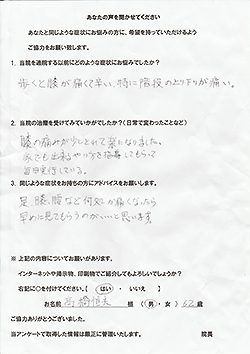 あなたの声を聞かせてください
あなたと同じような症状にお悩みの方に、希望を持っていただけるよう
ご協力をお願い致します。
1. 当院を通院する以前にどのような症状にお悩みでしたか?
歩くと膝が痛くて辛い。特に階段の上り下りが痛い。
2. 当院の治療を受けてみていかがでしたか?(日常で変わったことなど)
膝の痛みが少しとれて楽になりました。
家でも出来るやり方を指導してもらって
毎日実行している。
3. 同じような症状をお持ちの方にアドバイスをお願いします。
足、膝、腰など何処か痛くなったら
早めに見てもらうのがいいと思います
※ 上記の内容についてお願いあり。
インターネットや掲示物、印刷物でご紹介してもよろしいでしょうか?
右記に○を付けてください。( はい ・ いいえ )
お名前 高橋 様 ( 男 ・ 女 ) 62 歳
ご協力ありがとうございました。
当アンケートで取得した情報は厳正に管理いたします。 院長